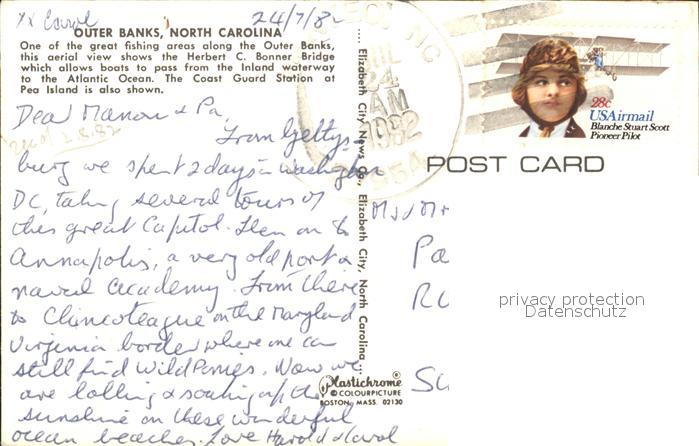 xx Carol
24/7/82
OUTER BANKS, NORTH CAROLINA
One of the great fishing areas along the Outer Banks,
this aerial view shows the Herbert C. Bonner Bridge
which allows boats to pass from the Inland waterway
to the Atlantic Ocean. The Coast Guard Station at
Pea Island is also shown.
Dear Manon & Pa,
2.8.82
From Gettys-
burg we spent 2 days in Washington
DC, taking several tours of
this great Capitol. Then on to
Annapolis, a very old port &
naval academy. From there
to Chincoteague on the Maryland
Virginia border where one can
still find Wild Ponies. Now we
are lolling & soaking up the
sunshine on these wonderful
ocean beaches. Love Harold & Carol
.... Elizabeth City News Co., Elizabeth City, North Carolina ...
Plastichrome®
© COLOURPICTURE
BOSTON, MASS. 02130
NC
24
AM
1982
28c
USAirmail
Blanche Stuart Scott
Pioneer Pilot
POST CARD
M
Pa
Ru
Su
privacy protection
Datenschutz